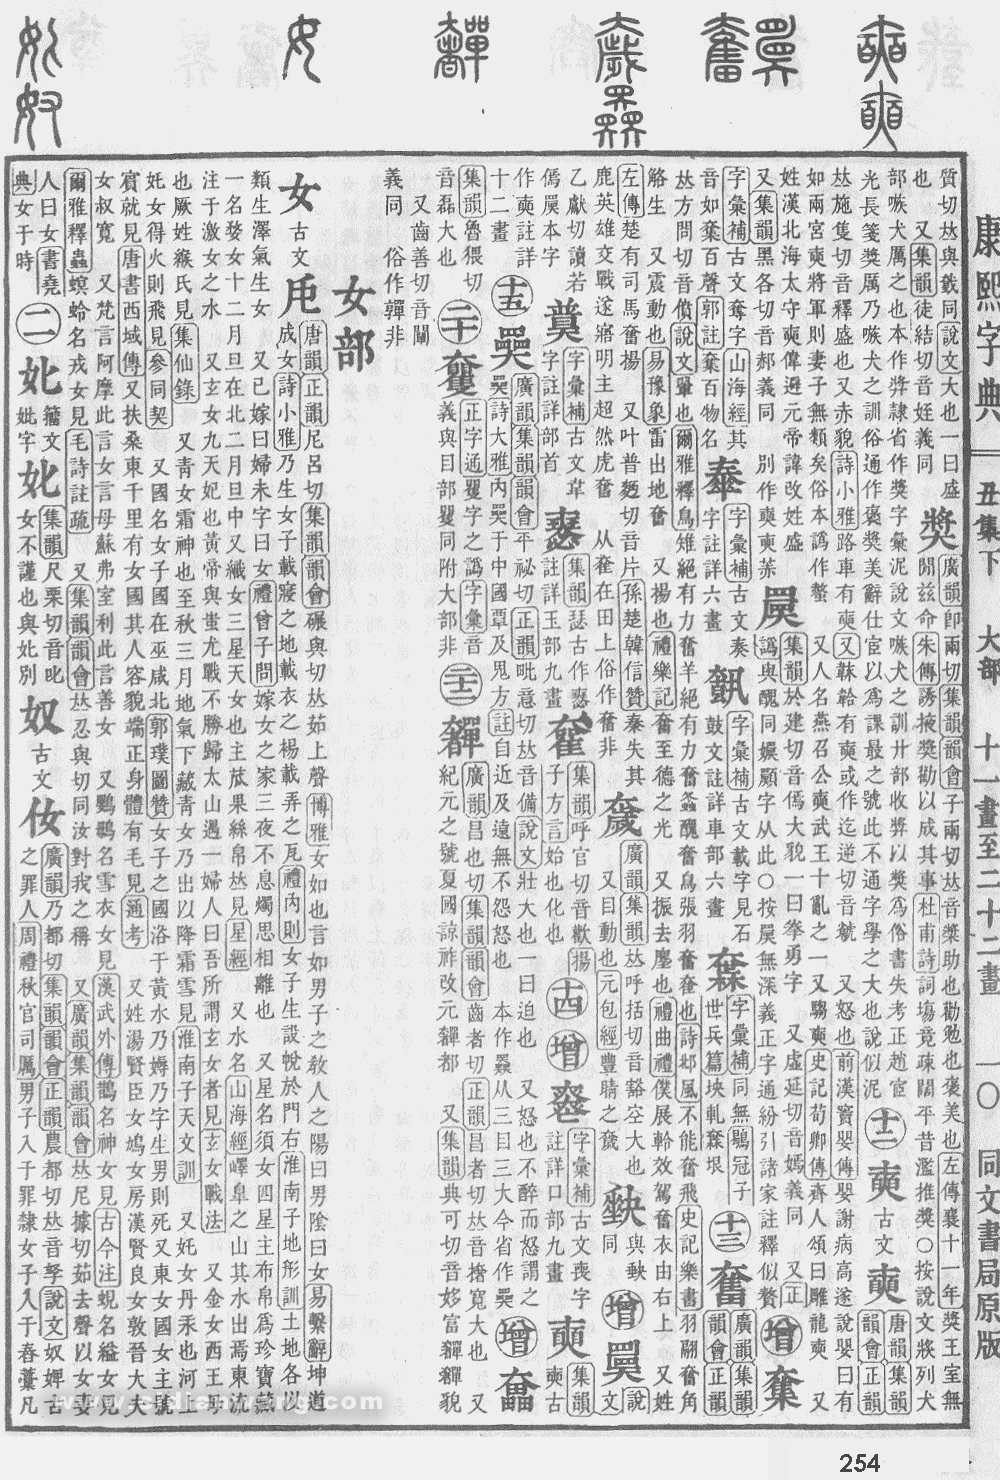 康熙字典 丑集下 大部 十一畫至二十二畫 一〇 同文書局原版
大也一曰盛
也 又集韻徒結切音姪義同
奬
廣韻卽兩切集韻韻會子兩切𡘋音槳助也勸勉也褒美也左傳襄十一年奬王室無
閒茲命朱傳誘掖奬勸以成其事杜甫詩詞場竟疎闊平昔濫推奬○按說文將列犬
部嗾犬厲之也本作㢡隸省作奬字彙泥說文嗾犬之訓廾部收㢡以奬爲俗書失考正趙宧
光長箋奬厲乃嗾犬之訓俗通作褒奬美辭仕宦以爲課最之號此不通字學之大也說似泥
十二
奭
古文
奭
唐韻集韻
韻會正韻
𡘋施隻切音釋盛也又赤貌詩小雅路車有奭
又怒也前漢竇嬰傳
嬰謝病高遂說嬰曰有
如兩宮奭將軍則妻子無類矣俗本譌作螫 又人名燕召公奭武王十亂之一又騶奭史記荀卿傳齊人頌曰雕龍奭 又
姓漢北海太守奭偉避元帝諱改姓盛 別作奭
又集韻黑各切音郝義同
集韻於建切音傿大貌一曰拳勇字 又虛延切音嫣義同 又正
譌與䣺同
增
字彙補古文奪字山海經其
音如
百聲郭註
百物名
字彙補古文
字註詳六畫
字彙補古文載字見石
鼓文註詳車部六畫
字彙補同無鶡冠子
世兵篇坱軋
垠
十三
奮
廣韻集韻
韻會正韻
𡘋方問切音僨說文翬也爾雅釋鳥雉絕有力奮羊絕有力奮
雞張羽奮奮也詩邶風不能奮飛史記樂書羽翮奮角
觡生 又震動也易豫象雷出地奮 又揚也禮樂記奮至德之光 又振去塵也禮曲禮僕展軨效駕奮衣由右上 又姓
左傳楚有司馬奮揚 又叶普麪切音片孫楚韓信贊秦失其
鹿英雄交戰遂寤明主超然虎奮 从奞在田上俗作奮非
廣韻集韻𡘋呼括切音豁空大也
又目動也元包經豐䀏之𡙸
同
增
說
文
乙獻切讀若
傿屭本字
字彙補古文革
字註詳部首
集韻瑟古作
註詳玉部九畫
集韻呼官切音歡揚
子方言始也化也
十四
增
字彙補古文喪字
註詳口部九畫
奭
奭古
作奭註詳
十二畫
十五
奰
廣韻集韻韻會平祕切正韻毗意切𡘋音備說文壯大也一曰迫也 又怒也不醉而怒謂之
奰詩大雅內奰于中國覃及鬼方註自近及遠無不怨怒也 本作㚘从三目三大今省作奰
增
集韻魯猥切
音磊大也
二十
正字通矍字之譌字彙音
義與目部矍同附大部非
二十二
奲
廣韻昌也切集韻韻會齒者切正韻昌者切𡘋音撦寬大也 又
紀元之號夏國諒祚改元奲都 又集韻典可切音㛆富奲奲貌
又齒善切音闡
義同 俗作䪜非
女部
女
古文
𠨰
唐韻正韻尼呂切集韻韻會碾與切𡘋茹上聲博雅女如也言如男子之敎人之陽曰男陰曰女易繫辭坤道
成女詩小雅乃生女子載寢之地載衣之裼載弄之瓦禮內則女子生設帨於門右淮南子地形訓土地各以
類生澤氣生女 又已嫁曰婦未字曰女禮曾子問嫁女之家三夜不息燭思相離也 又星名須女四星主布帛爲珍寶藏
一名婺女十二月旦在北二月旦中又織女三星天女也主苽果絲帛𡘋見星經 又水名山海經嶧皐之山其水出焉東流
注于激女之水 又玄女九天妃也黃帝與蚩尤戰不勝歸太山遇一婦人曰吾所謂玄女者見玄女戰法 又金女西王母
也厥姓緱氏見集仙錄 又靑女霜神也至秋三月地氣下藏靑女乃出以降霜雪見淮南子天文訓 又奼女丹汞也河上
奼女得火則飛見參同契 又國名女子國在巫咸北郭璞圖贊女子之國浴于黃水乃娠乃字生男則死又東女國女主號
賓就見唐書西域傳又扶桑東千里有女國其人容貌端正身體有毛見通考 又姓湯賢臣女鳩女房漢賢良女敦晉大夫
女叔寬 又梵言阿摩此言女言母蘇弗室利此言善女 又鸚鵡名雪衣女見漢武外傳鵲名神女見古今注蜆名縊女見
爾雅釋蟲螟蛉名戎女見毛詩註疏 又集韻韻會𡘋忍與切同汝對我之稱 又廣韻集韻韻會𡘋尼據切茹去聲以女妻
人曰女書堯
典女于時
二
籀文
妣字
集韻尺栗切音叱
女不謹也
奴
古文
㚢
廣韻乃都切集韻韻會正韻農都切𡘋音孥說文奴婢古
之罪人周禮秋官司厲男子入于罪隸女子入于舂槀凡
254